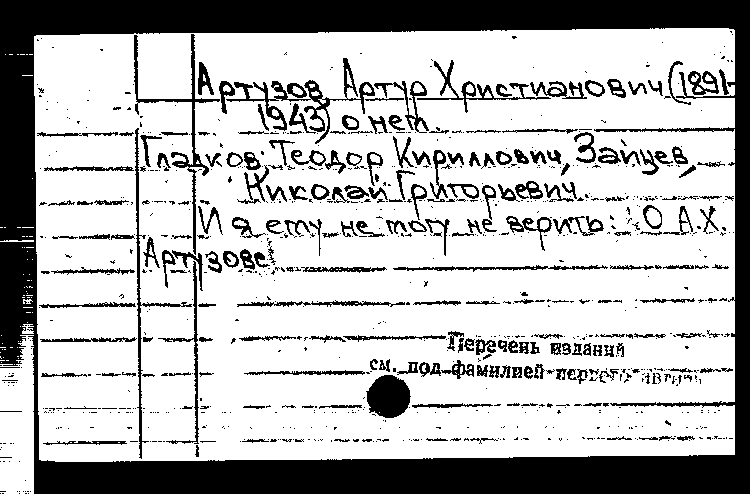 Артузов, Артур Христианович (1891-
1943) о нем.
Гладков, Теодор Кириллович, Зайцев,
Николай Григорьевич.
И я ему не могу не верить: О А.Х.
Артузове
Перечень изданий
см. под фамилией первого автора